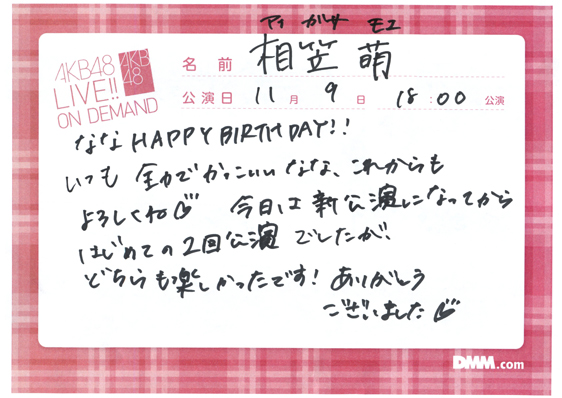 アイ ガサ モエ
AKB48
LIVE!!
ON DEMAND
AKB
48
名前 相笠 萌
公演日 11月 9日 18:00 公演
ななHAPPY BIRTHDAY!!
いつも 全力でかっこいいなな、これからも
よろしくね♡ 今日は新公演になってから
はじめての2回公演 でしたが!
どちらも楽しかったです! ありがとう
ございました♡
DMM.com